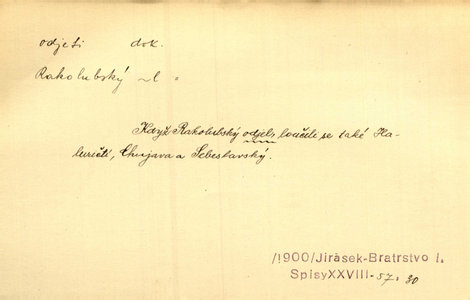 odjeti dok.
Rakolubský ~l =
Když Rakolubský odjel, loučili se také Ha-
luzičtí, Chujava a Sebeslavský.
/1900/Jirásek-Bratrstvo I.
SpisyXXVIII-57:30